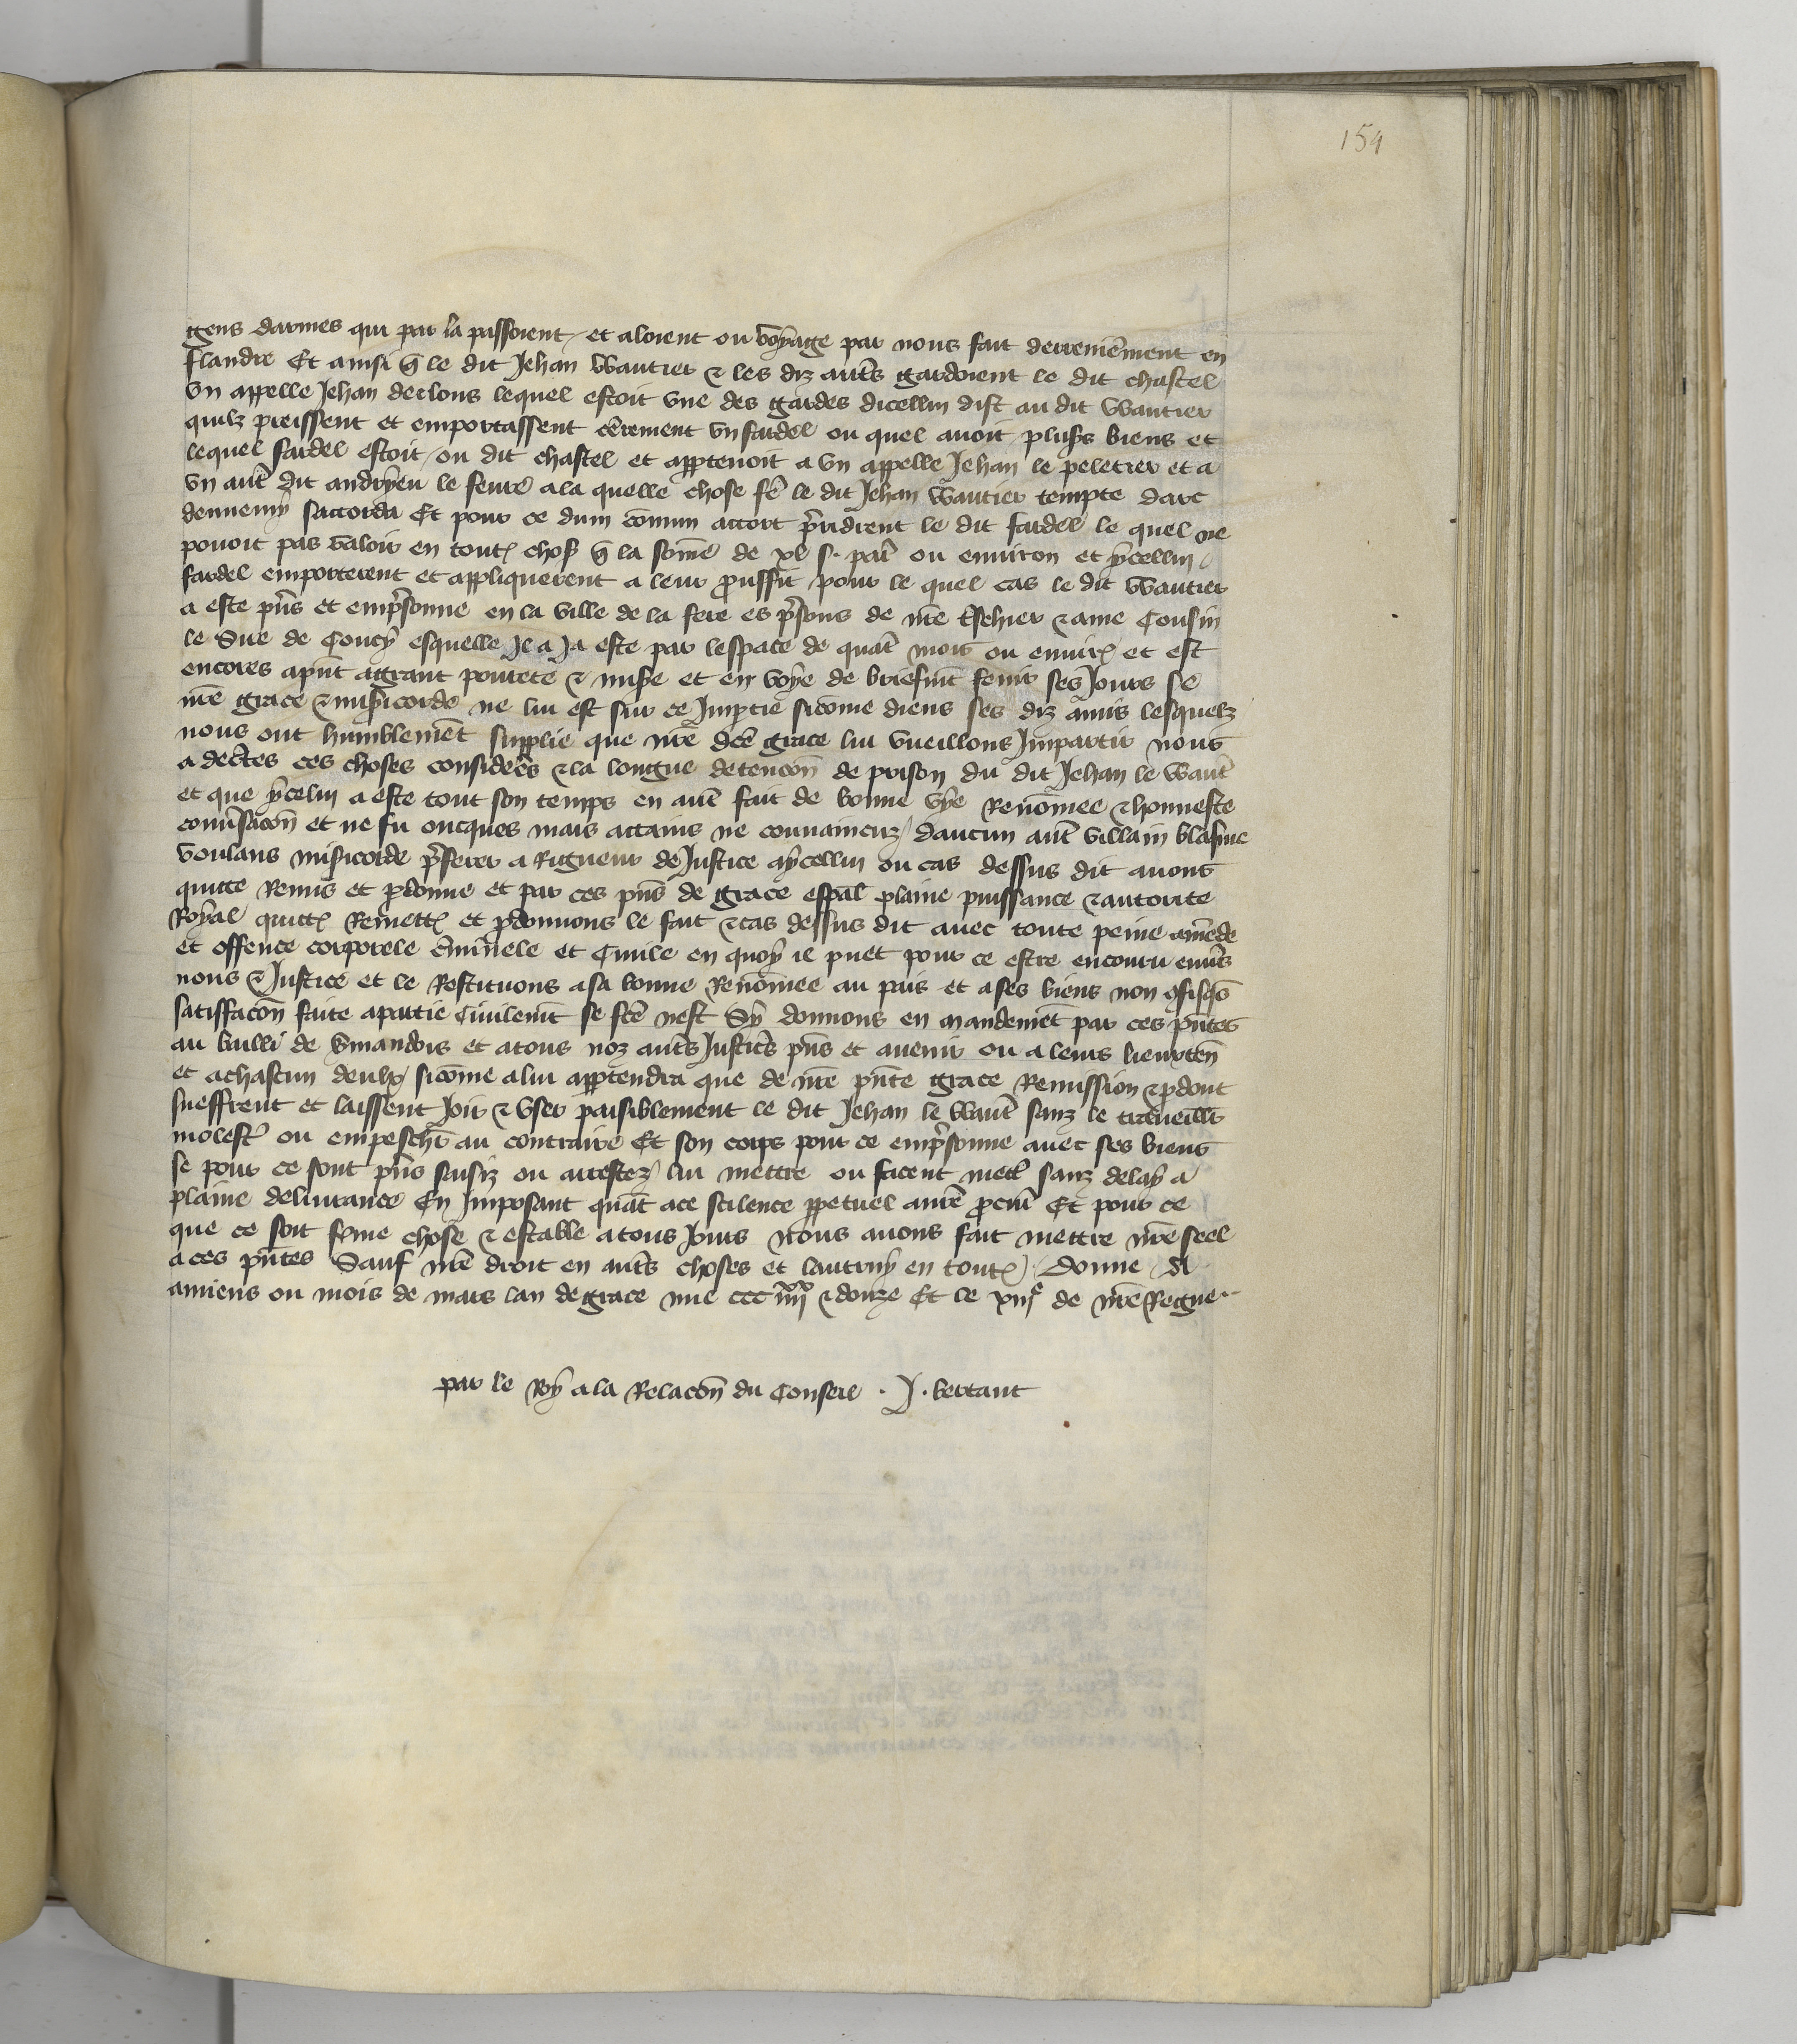 154
gens darmes qui par la passoient et aloient ou voyage par nous fait derreniement en
flandre Et ainsi q̃ le dit Jehan Wautier & les diz aut̃s gardoient le dit chastel
vn appelle Jehan declous lequel estoit vne des gardes dicellui dist au dit Wautier
quilz preissent et emportassent c̃erement vn fardel ou quel auoit plus̃s biens et
lequel fardel estoit ou dit chastel et app̱tenoit a vn appelle Jehan le peletier et a
vn aut̃ dit andryeu le feure a la quelle chose f̃e le dit Jehan Wautier tempte dare
dennemy saccorda Et pour ce dum c̃omun accort p̃ridrent le dit fardel le quel ne
pouoit pas valoir en tout̃ chos̃ q̃ la som̃e de xl s. par̃ ou enuiron et ycellui
fardel emporterent et appliquerent a leur prouffit pour le quel cas le dit Wautier
a este p̃ns et emp̃sonne en la ville de la fere es p̃sons de n̄re t̃schier & ame Cousin
le Sire de Coucy esquelle Jl a Ja este par lespace de quat̃ mois ou enuirõ et est
encores ap̃nt a grant pourete & mis̃e et en voye de briefm̃t fenir ses Jours se
n̄re grace & mis̃icorde ne lui est sur ce Jmp̱tie sicõme dient ses diz amis lesquelz
nous ont humblemẽt supplie que n̄re dc̃e grace lui vueillons Jmpartir nous
adect̃es ces choses consider̃es & la longue detencoñ de prison du dit Jehan le Waut̃
et que ycelui a este tout son temps en aut̃ fait de bonne vye Renõmee & honneste
conu̾sacoñ et ne fu oncques mais attains ne conuaincuz daucun aut̃ villain blasme
voulans mis̃icorde p̃ferer a Rigueur de Justice aycellui ou cas dessus dit auons
quitte Remis et p̱donne et par ces p̃ns de grace esp̃al plaine puissance & autorite
Royal quitt̃ Remett̃ et p̱donnons le fait & cas dessus dit auec toute peine amẽde
et offence corporele c̃iminele et Ciuile en quoy il puet pour ce estre encouru enu̾s
nous & Justice et le Restituons a sa bonne Renõmee au pais et a ses biens non ꝯfisqs̃
satisfacoñ faite a partie Ciuilem̃t se fc̃e nest Sy donnons en mandemẽt par ces p̃ntes
au bailli de v̾mandois et a tous noz aut̃s Justic̃s p̃ns et auenir ou a leurs lieuxteñ
et a chascun deulx sicõme a lui app̱tendra que de n̄re p̃nte grace Remission & p̱don
sueffrent et laissent Joir & vser paisiblement le dit Jehan le Waut̃ sanz le trauaill̃
molest̃ ou empesch̃ au contraire Et son corps pour ce emp̃sonne auec ses biens
se pour ce sont p̃ns saisiz ou arrestez lui mettre ou facent mett̃ sanz delay a
plaine deliurance En Jmposant quãt a ce scilence pp̱etuel a n̄re procur̃ Et pour ce
que ce soit ferme chose & estable a tous Jours nous auons fait mettre n̄re seel
a ces p̃ntes Sauf n̄re droit en aut̃s choses et lautruy en tout̃ Donne A
amiens ou mois de mars lan de grace mil ccc iiiixx & douze Et le xiiie de n̄re Regne
par le Roy a la Relacoñ du Conseil . J. bertaut